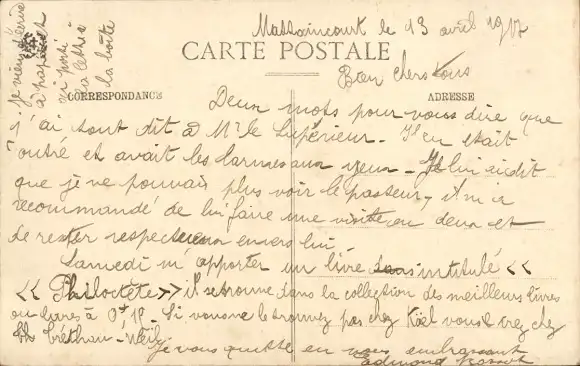 je viens d'écrire
à papa et
ai porté
la lettre à
la boîte
Mattaincourt le 13 avril 1917
CARTE POSTALE
Bien chers tous
CORRESPONDANCE
ADRESSE
Deux mots pour vous dire que
j'ai tout dit à Mr le Supérieur. Il en était
outré et avait les larmes aux yeux. Je lui ai dit
que je ne pouvais plus voir le pasteur, il m'a
recommandé de lui faire une visite ou deux et
de rester respectueux envers lui.
Samedi m'apporter un livre intitulé <<
<< Philoctète >> il se trouve dans la collection des meilleurs livres
ou livres à 0f,10. Si vous ne le trouvez pas chez vous irez chez
je vous quitte en vous embrassant
Edmond